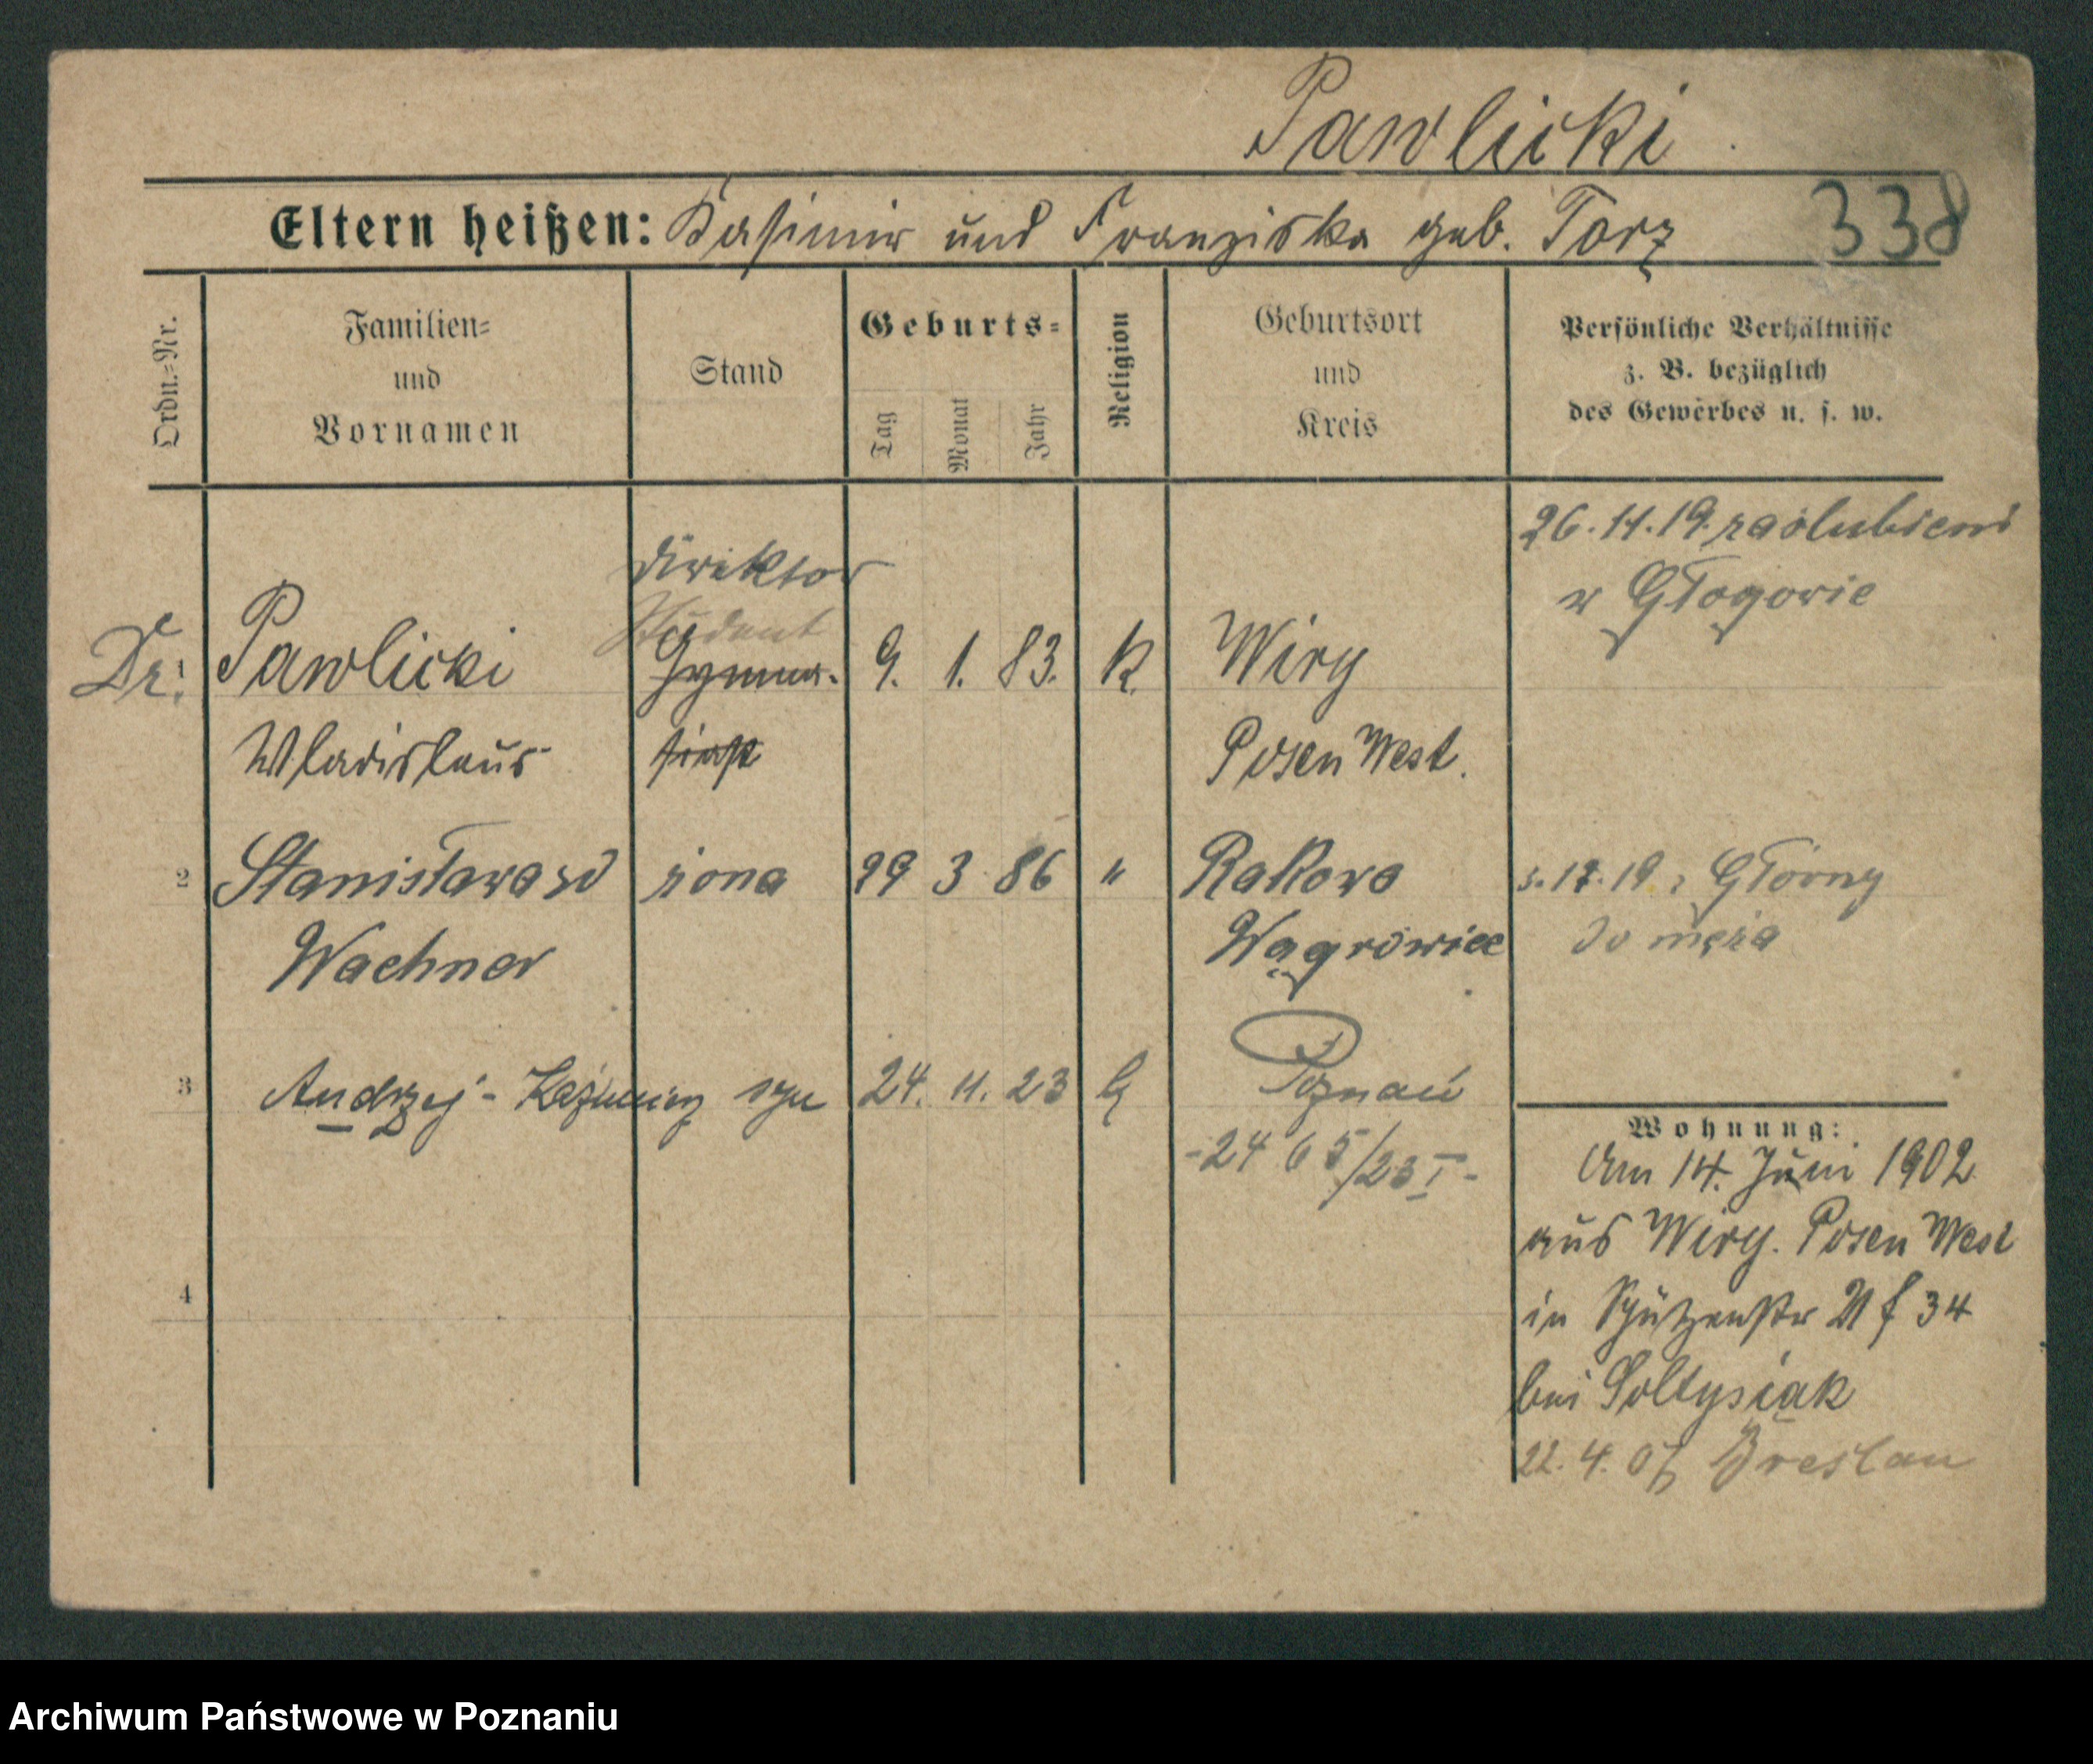 Pawlicki
Eltern heißen: Kasimir und Franziska geb. Torz
338
Ordn.=Nr.
Familien=
und
Vornamen
Stand
Geburts=
Tag
Monat
Jahr
Religion
Geburtsort
und
Kreis
Persönliche Verhältnisse
z. B. bezüglich
des Gewerbes u. s. w.
26.11.19. zaślubieni
w Głogowie
Direktor
Student
Dr. 1 Pawlicki Gymna- 9. 1. 83. K. Wiry
Wladislaus siast Posen West.
2 Stanisława zd żona 29 3 86 " Rakowo
Wachner Wągrówiec
Główny
do męża
3 Andrzej-Kaźmierz syn 24. 11. 23 Poznań
-2465/23 I-
4
Wohnung:
Am 14. Juni 1902
aus Wiry. Posen West
in Schützenstr 21 f 34
bei Soltysiak
22. 4. 07 Breslau
Archiwum Państwowe w Poznaniu